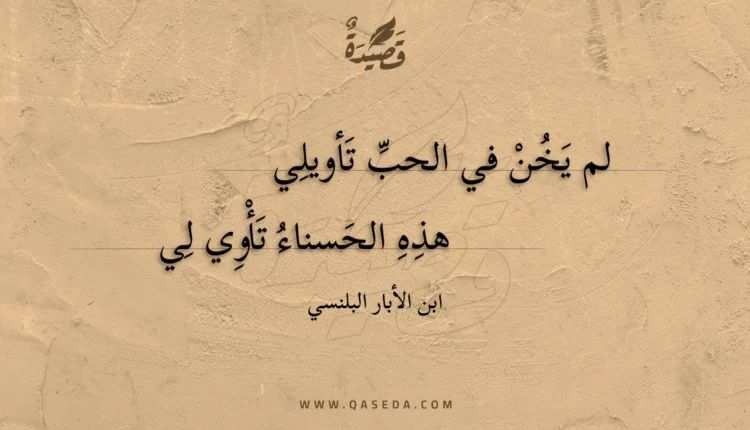 قَصِيدَةٌ
لم يَخُنْ في الحبِّ تَأويلِي
هذِهِ الحَسناءُ تَأْوِي لِي
ابن الأبار البلنسي
WWW.QASEDA.COM